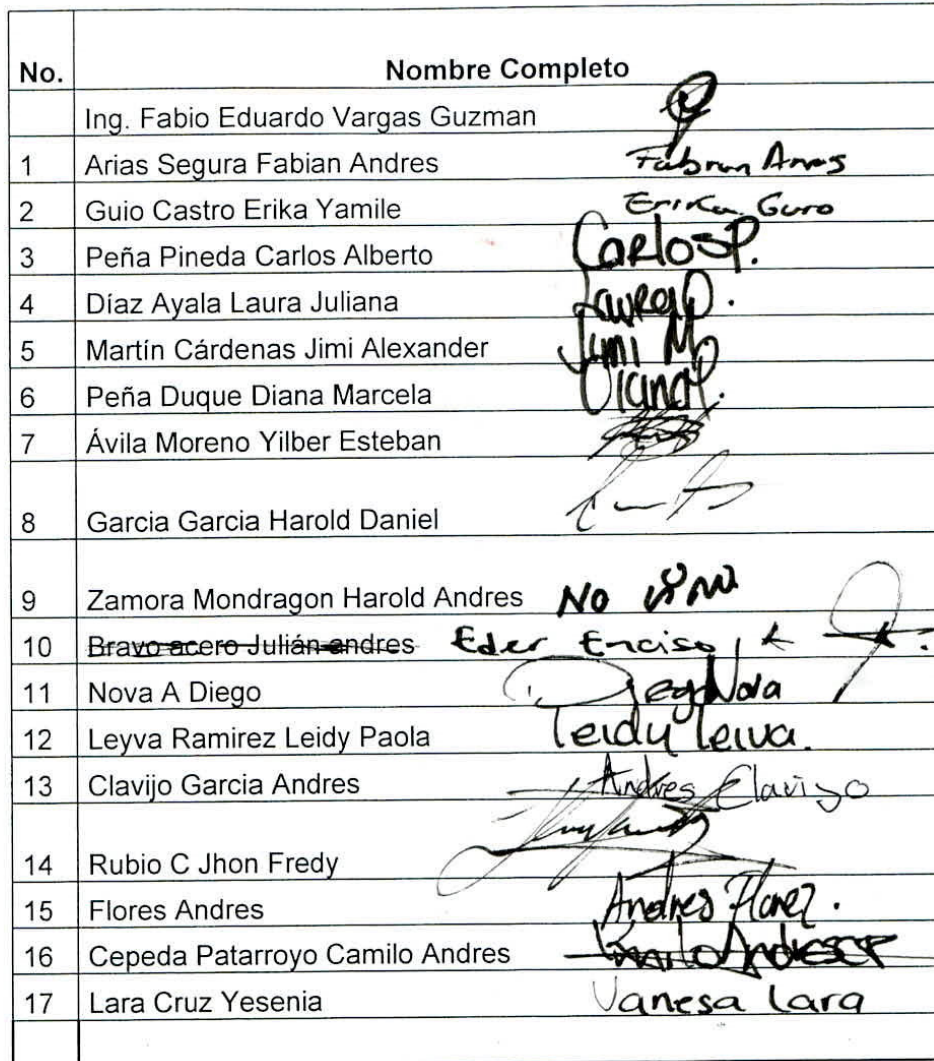 No. Nombre Completo
Ing. Fabio Eduardo Vargas Guzman
1 Arias Segura Fabian Andres Fabian Arias
2 Guio Castro Erika Yamile Erika Guio
3 Peña Pineda Carlos Alberto Carlos P.
4 Díaz Ayala Laura Juliana Laura D.
5 Martín Cárdenas Jimi Alexander Jimi M
6 Peña Duque Diana Marcela Diana P.
7 Ávila Moreno Yilber Esteban
8 Garcia Garcia Harold Daniel
9 Zamora Mondragon Harold Andres No vino
10 Bravo acero Julián andres Eder Enciso
11 Nova A Diego Diego Nova
12 Leyva Ramirez Leidy Paola Leidy Leiva.
13 Clavijo Garcia Andres Andres Clavijo
14 Rubio C Jhon Fredy
15 Flores Andres Andres Florez.
16 Cepeda Patarroyo Camilo Andres Camilo Andres
17 Lara Cruz Yesenia Vanesa Lara